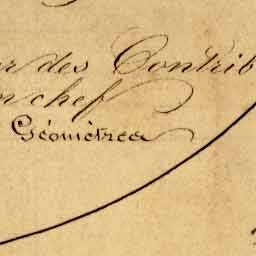 ur des Contrib
n chef
Géomètres